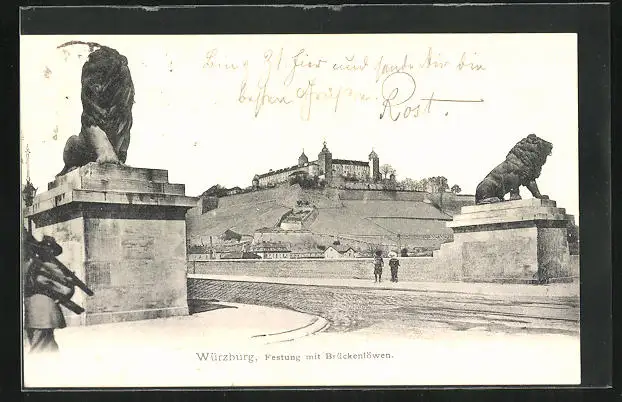 Bin z. Zt. hier und sende Dir die
besten Grüße
Rost.
Würzburg, Festung mit Brückenlöwen.